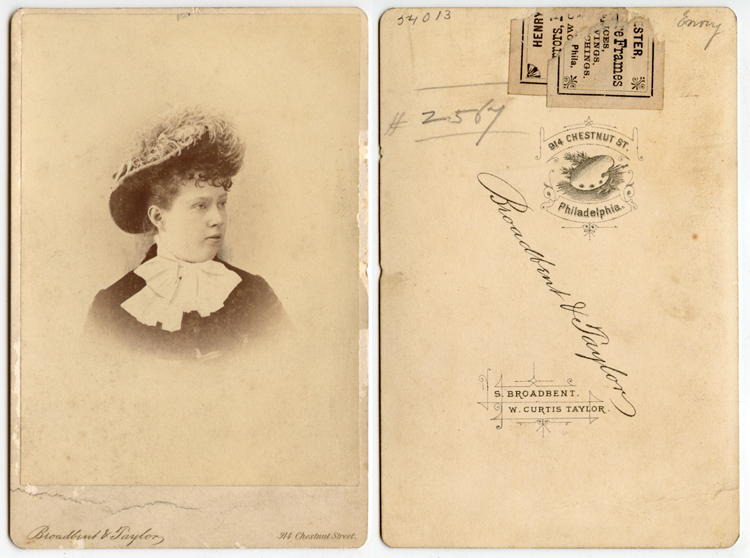 Broadbent & Taylor
914 Chestnut Street.
54013
HENRY
TOIS,
STER,
re Frames
CES,
VINGS,
CHINGS.
Phila.
# 2587
914 CHESTNUT ST.
Philadelphia.
Broadbent & Taylor
S. BROADBENT.
W. CURTIS TAYLOR.